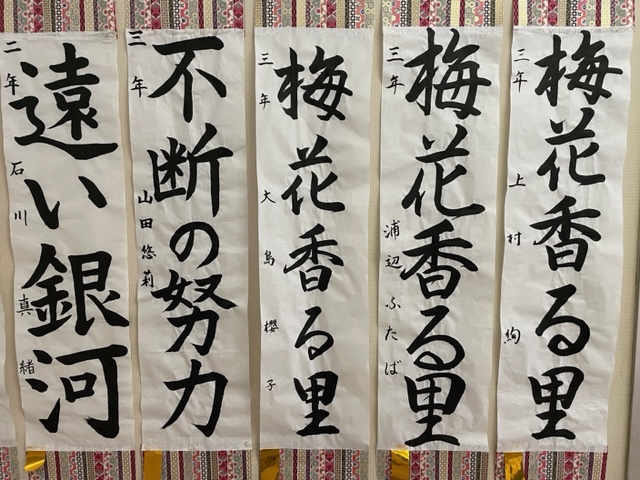 梅花香る里
三年 上村 絢
梅花香る里
三年 浦辺ふたば
梅花香る里
三年 大島櫻子
不断の努力
三年 山田悠莉
遠い銀河
二年 石川真緒